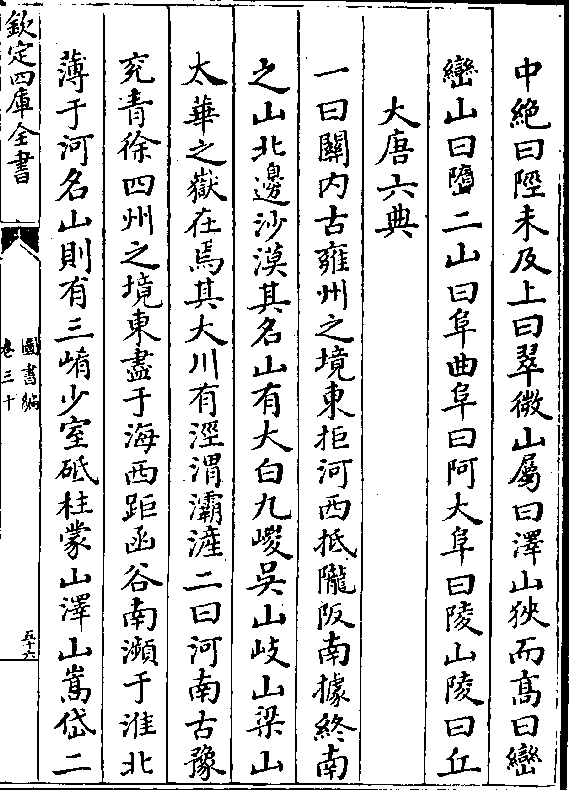 中絶曰陘未及上曰翠微山屬曰澤山狹而髙曰巒
巒山曰隨二山曰阜曲阜曰阿大阜曰陵山陵曰丘
大唐六典
一曰關内古雍州之境東拒河西抵隴阪南據終南
之山北邊沙漠其名山有大白九嵕吳山岐山梁山
太華之嶽在焉其大川有涇渭灞滻二曰河南古豫
兖青徐四州之境東盡于海西距函谷南瀕于淮北
薄于河名山則有三崤少室砥柱蒙山澤山嵩岱二
欽定四庫全書
圖書編
卷三十
五十六